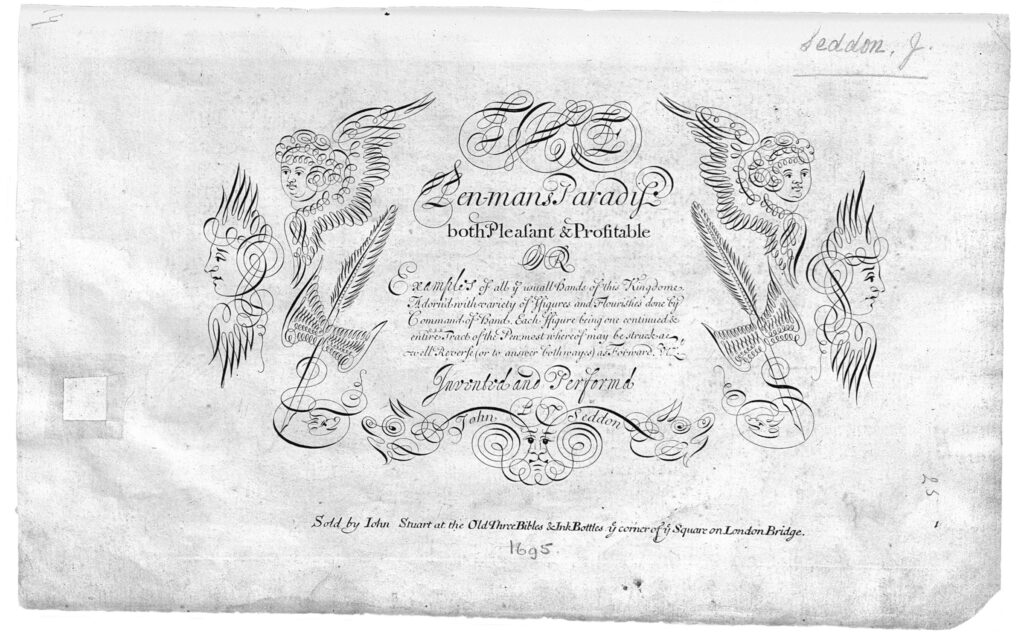 Seddon, J.
THE
Pen-mans Paradiſe
both Pleaſant & Profitable
OR
Examples of all yͤ usuall Hands of this Kingdome.
Adorn'd with variety of ffigures and Flourishes done by
Command of Hand. Each ffigure being one continued &
entire Tract of the Pen most whereof may be struck as
well Reverse (or to answer both wayes) as Forward.
Invented and Performd
By
John Seddon
25
1
Sold by Iohn Stuart at the Old Three Bibles & Ink Bottles yͤ corner of yͤ Square on London Bridge.
1695.